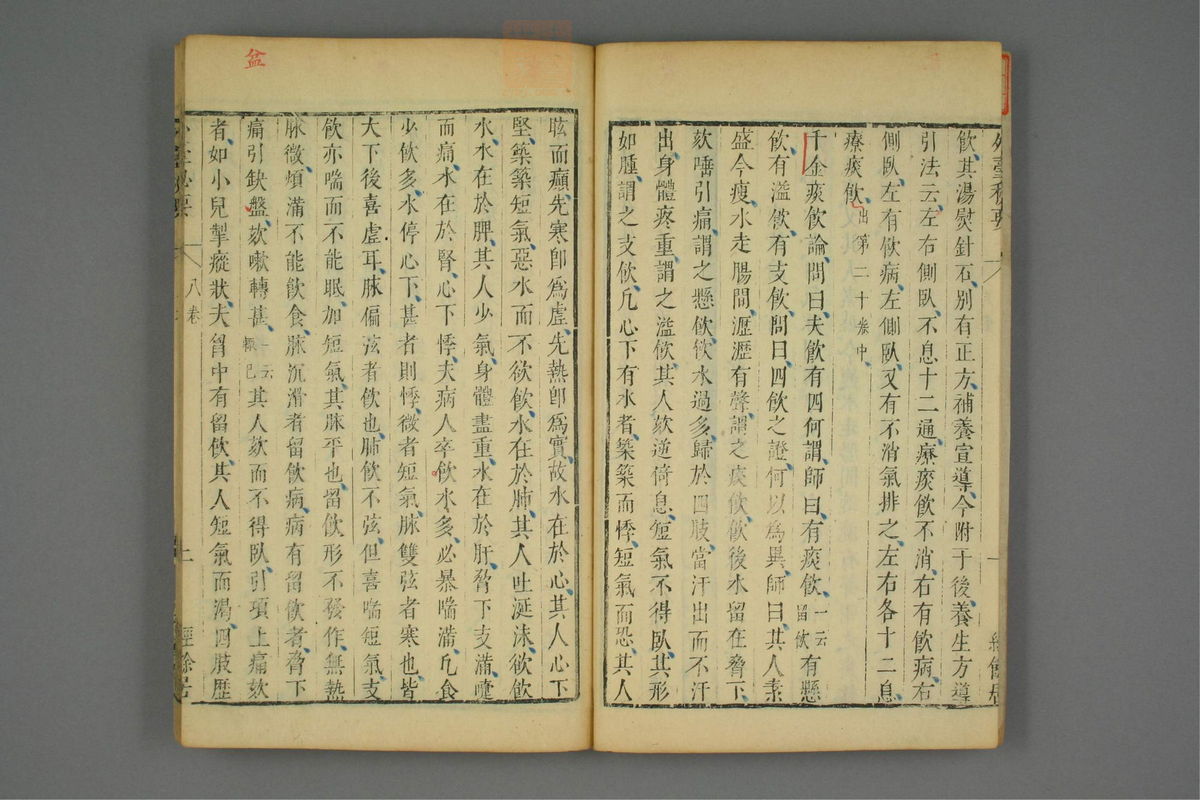 外臺秘要
飲其湯熨針石別有正方補養宣導今附于後養生方導
引法云左右側臥不息十二通療痰飲不消右有飲病右
側臥左有飲病左側臥又有不消氣排之左右各十二息
療痰飲出第二十卷中
千金痰飲論問曰夫飲有四何謂師曰有痰飲一云留飲有懸
飲有溢飲有支飲問曰四飲之證何以為異師曰其人素
盛今瘦水走腸間瀝瀝有聲謂之痰飲飲後水留在脅下
欬唾引痛謂之懸飲飲水過多歸於四肢當汗出而不汗
出身體疼重謂之溢飲其人欬逆倚息短氣不得臥其形
如腫謂之支飲凡心下有水者築築而悸短氣而恐其人
眩而癲先寒即為虛先熱即為實故水在於心其人心下
堅築築短氣惡水而不欲飲水在於肺其人吐涎沫欲飲
水水在於脾其人少氣身體盡重水在於肝脅下支滿嚏
而痛水在於腎心下悸夫病人卒飲水多必暴喘滿凡食
少飲多水停心下甚者則悸微者短氣脉雙弦者寒也皆
大下後喜虛耳脉偏弦者飲也肺飲不弦但喜喘短氣支
飲亦喘而不能眠加短氣其脉平也留飲形不發作無熱
脉微煩滿不能飲食脉沉滑者留飲病病有留飲者脅下
痛引缺盤欬嗽轉甚一云輒已其人欬而不得臥引項上痛欬
者如小兒掣瘲狀夫胷中有留飲其人短氣而渴四肢歷
八卷
上
經餘居
盆